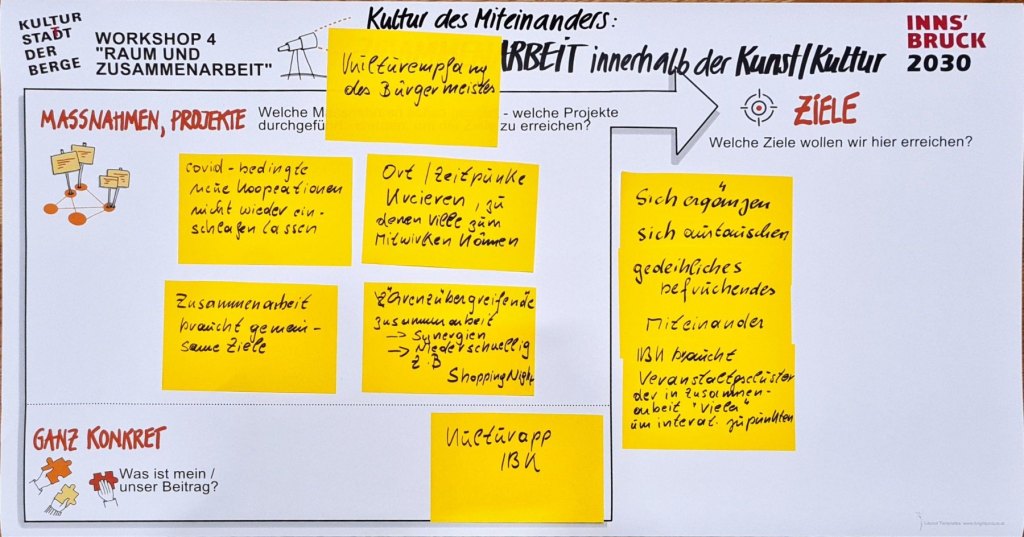 KULTUR
STADT
DER
BERGE
WORKSHOP 4
"RAUM UND
ZUSAMMENARBEIT"
Kultur des Miteinanders:
ARBEIT innerhalb der Kunst/Kultur
INNS'
BRUCK
2030
Kulturempfang
des Bürgermeisters
MASSNAHMEN, PROJEKTE
Welche - welche Projekte
durchgefü zu erreichen?
covid-bedingte
neue Kooperationen
nicht wieder ein-
schlafen lassen
Ort/Zeitpunke
kreieren, zu
denen viele zum
Mitwirken können
Zusammenarbeit
braucht gemein-
same Ziele
Grenzübergreifende
Zusammenarbeit
-> Synergien
-> Niederschwellig
z.B
ShoppingNight
ZIELE
Welche Ziele wollen wir hier erreichen?
Sich ergänzen
sich austauschen
gedeihliches
befruchendes
Miteinander
IBK braucht
Veranstaltgscluster
der in Zusammen-
arbeit "vieler"
um internat. zu punkten
GANZ KONKRET
Was ist mein /
unser Beitrag?
Kulturapp
IBK